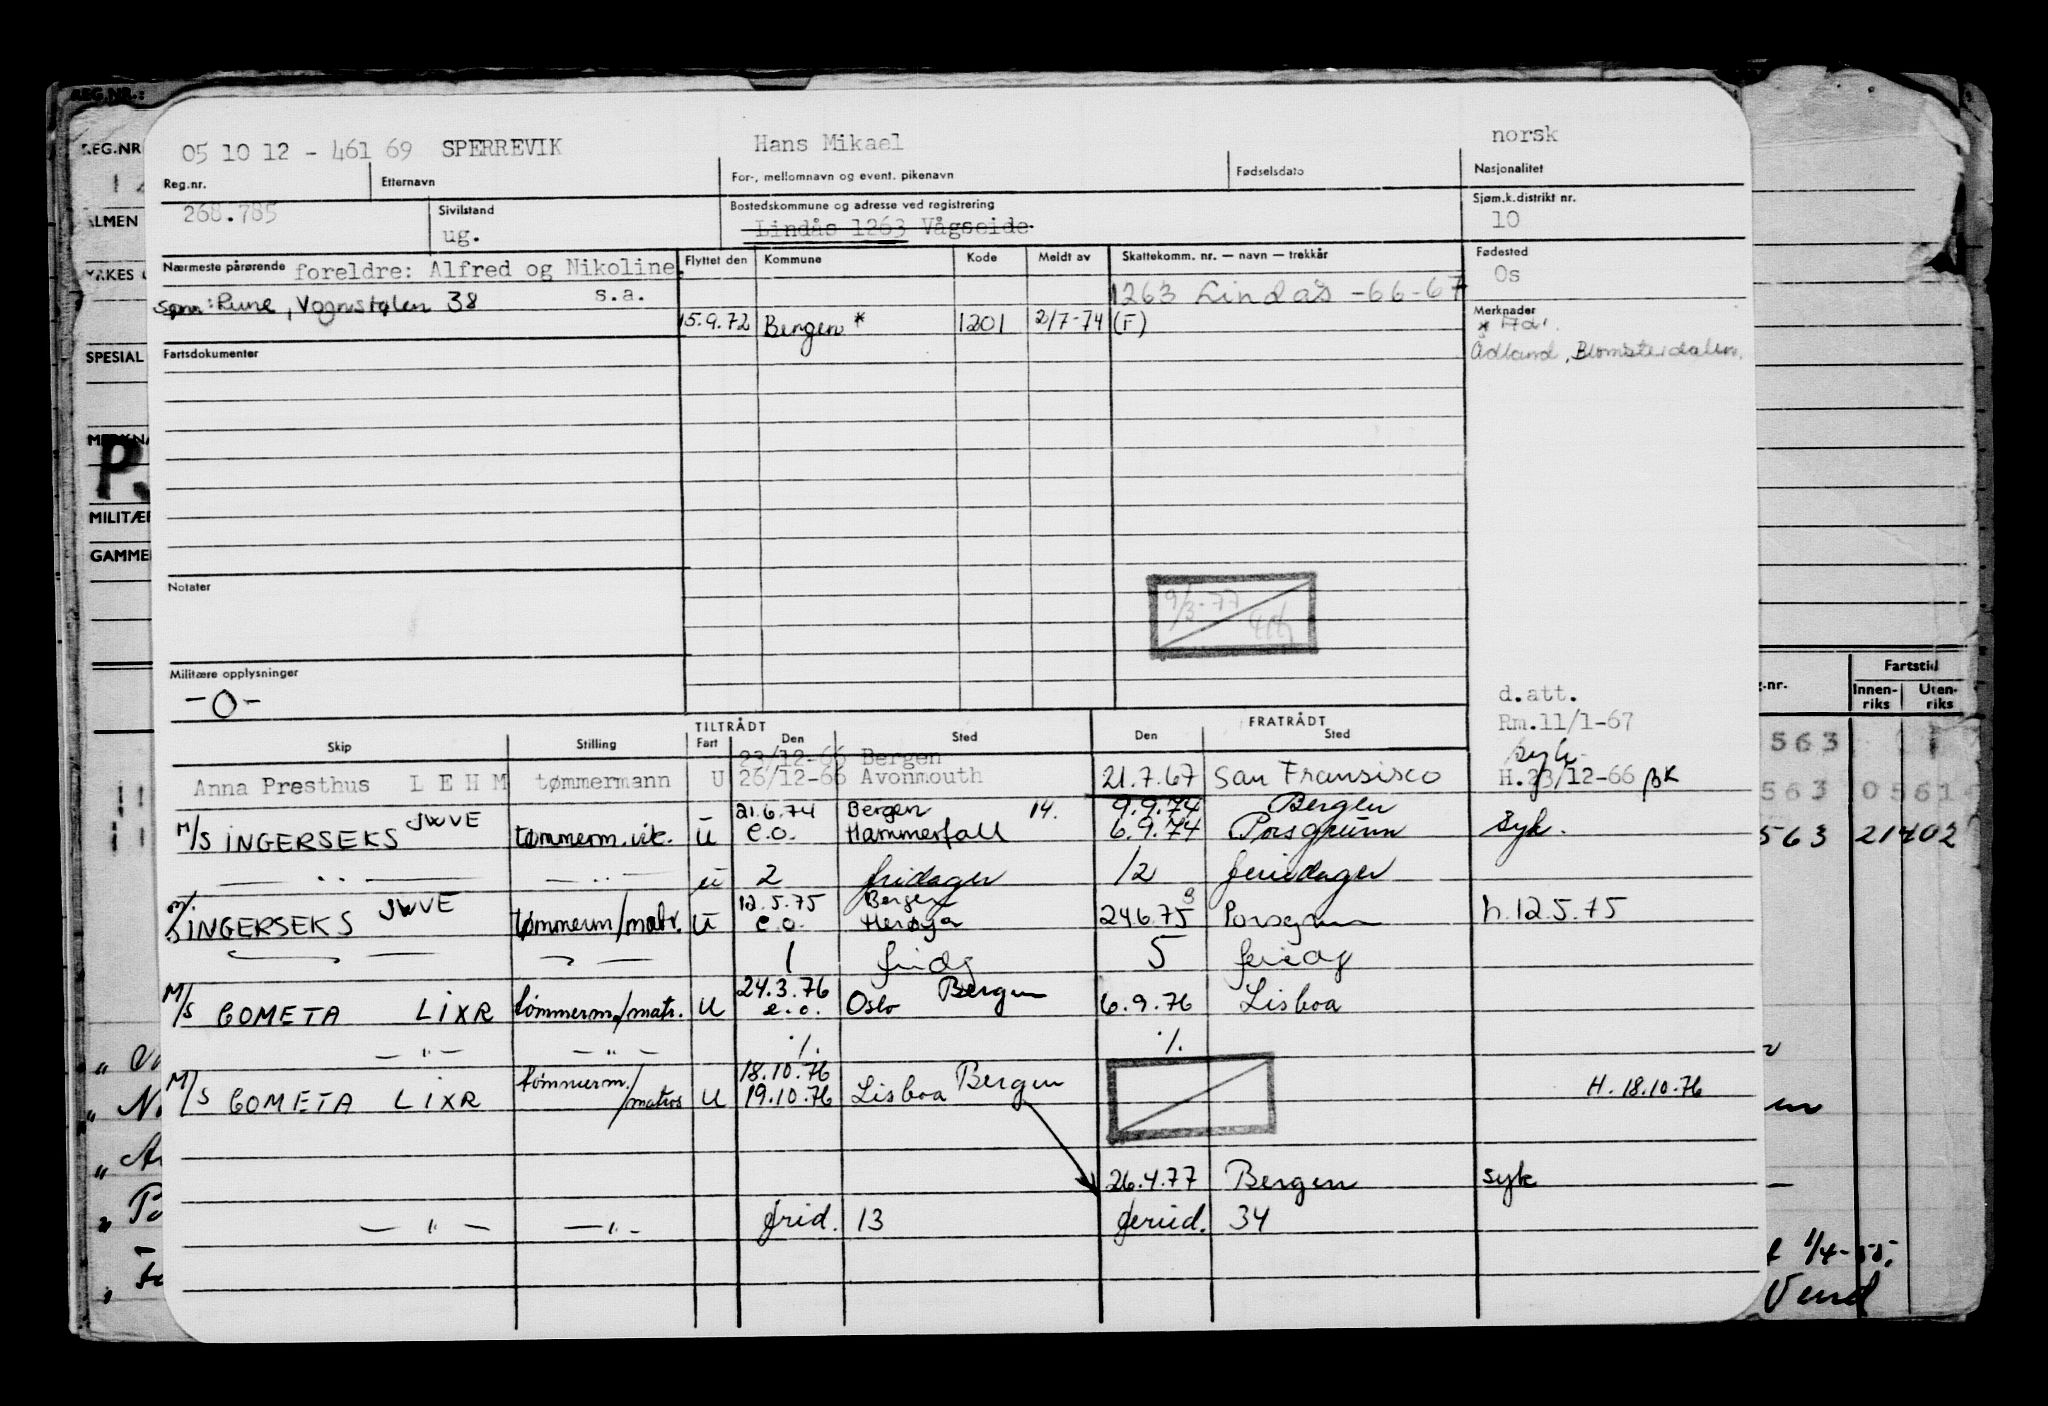 REG.NR.:
05 10 12 - 461 69 SPERREVIK Hans Mikael norsk
Reg.nr. Etternavn For-, mellomnavn og event. pikenavn Fødselsdato Nasjonalitet
268.785 Sivilstand Bostedskommune og adresse ved registrering Sjøm.k.distrikt nr.
ug. Lindås 1263 Vågseide 10
Nærmeste pårørende foreldre: Alfred og Nikoline. Flyttet den Kommune Kode Meldt av Skattekomm. nr. — navn — trekkår Fødested
s.a. 1263 Lindås -66-67 Os
Sønn: Rune, Vognstølen 38
15.9.72 Bergen * 1201 2/7-74 (F) Merknader
* Adr.
Ådland, Blomsterdalen.
Fartsdokumenter
Notater
9/3-77
Militære opplysninger
-0-
d.att.
Rm.11/1-67
TILTRÅDT FRATRÅDT
Skip Stilling Fart Den Sted Den Sted
syk.
23/12-66 Bergen
Anna Presthus L E H M tømmermann U 26/12-66 Avonmouth 21.7.67 San Fransisco H.23/12-66 BK
21.6.74 Bergen 14. 9.9.74 Bergen
M/S INGERSEKS JWVE tømmerm.vik. U e.o. Hammerfall 6.9.74 Porsgrunn syk.
— " — — " — u 2 fridager 12 feriedager
12.5.75 Bergen
M/S INGERSEKS JWVE tømmerm/matr. U e.o. Herøya 24.6.75 Porsgrunn h.12.5.75
1 fridg 5 feriedg
24.3.76 Bergen
M/S COMETA LIXR tømmerm./matr. U e.o. Oslo 6.9.76 Lisboa
— " — — " — ./. ./.
18.10.76 Bergen
M/S COMETA LIXR tømmerm./matros U 19.10.76 Lisboa H. 18.10.76
26.4.77 Bergen syk
— " — — " — frid. 13 feried. 34
REG.NR
ALMEN
YRKES
SPESIAL
MERKNA
MILITÆR
GAMME
Fartstid
-nr. Innen-riks Uten-riks
563
563 0561
563 21402
1/4-55.
Vend